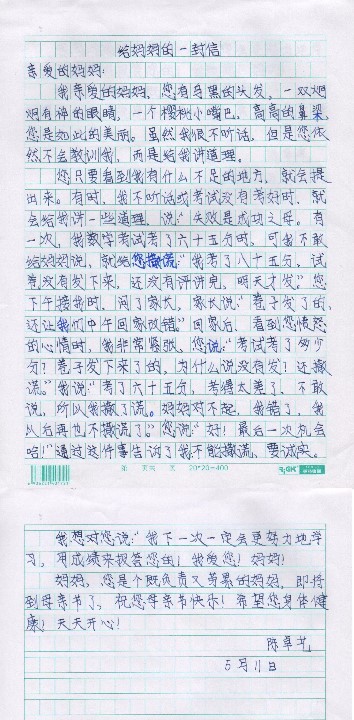 给妈妈的一封信
亲爱的妈妈:
我亲爱的妈妈,您有乌黑的头发,一双炯
炯有神的眼睛,一个樱桃小嘴巴,高高的鼻梁,
您是如此的美丽。虽然我很不听话,但是您依
然不会教训我,而是给我讲道理。
您只要看到我有什么不足的地方,就会提
出来。有时,我不听话或考试没有考好时,就
会给我讲一些道理,说:“失败是成功之母。有
一次,我数学考试考了六十五分时,可我不敢
给妈妈说,就给您撒谎:“我考了八十五分,试
卷没有发下来,还没有评讲完,明天才发”您
下午接我时,问了家长,家长说:“卷子发了的,
还让我们中午回家改错。”回家后,看到您愤怒
的心情时,我非常紧张,您说:“考试考了多少
分?卷子发下来了的,为什么说没有发?还撒
谎。”我说:“考了六十五分,考得太差了,不敢
说,所以我撒了谎。妈妈对不起,我错了,我
从后再也不撒谎了。”您说:“好!最后一次机会
哈!”通过这件事告诉了我不能撒谎,要诚实。
20×20=400
我想对您说:“我下一次一定会更努力地学
习,用成绩来报答您的!我爱您!妈妈!
妈妈,您是个既负责又劳累的妈妈,即将
到母亲节了,祝您母亲节快乐!希望您身体健
康!天天开心!
陈卓艺
5月11日